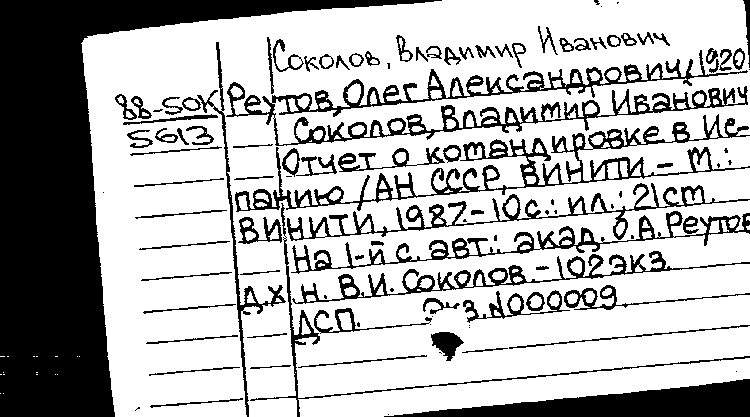 Соколов, Владимир Иванович
88-SOK Реутов, Олег Александрович, 1920
5613 Соколов, Владимир Иванович
Отчет о командировке в Ис-
панию / АН СССР, ВИНИТИ. - М.:
ВИНИТИ, 1987. - 10 с.: ил.; 21 см.
На 1-й с. авт.: акад. О.А. Реутов
д.х.н. В.И. Соколов. - 102 экз.
ДСП. Экз. N000009.